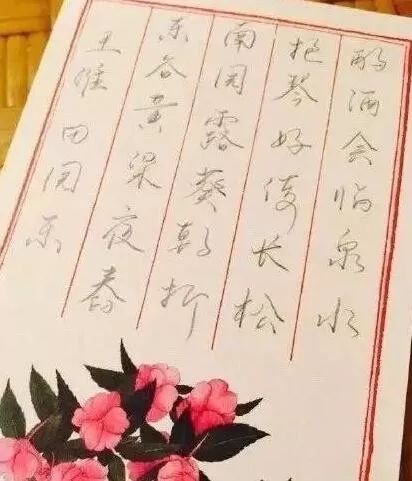 酌酒会临泉水
抱琴好倚长松
南园露葵朝折
东谷黄梁夜舂
王维 田园乐